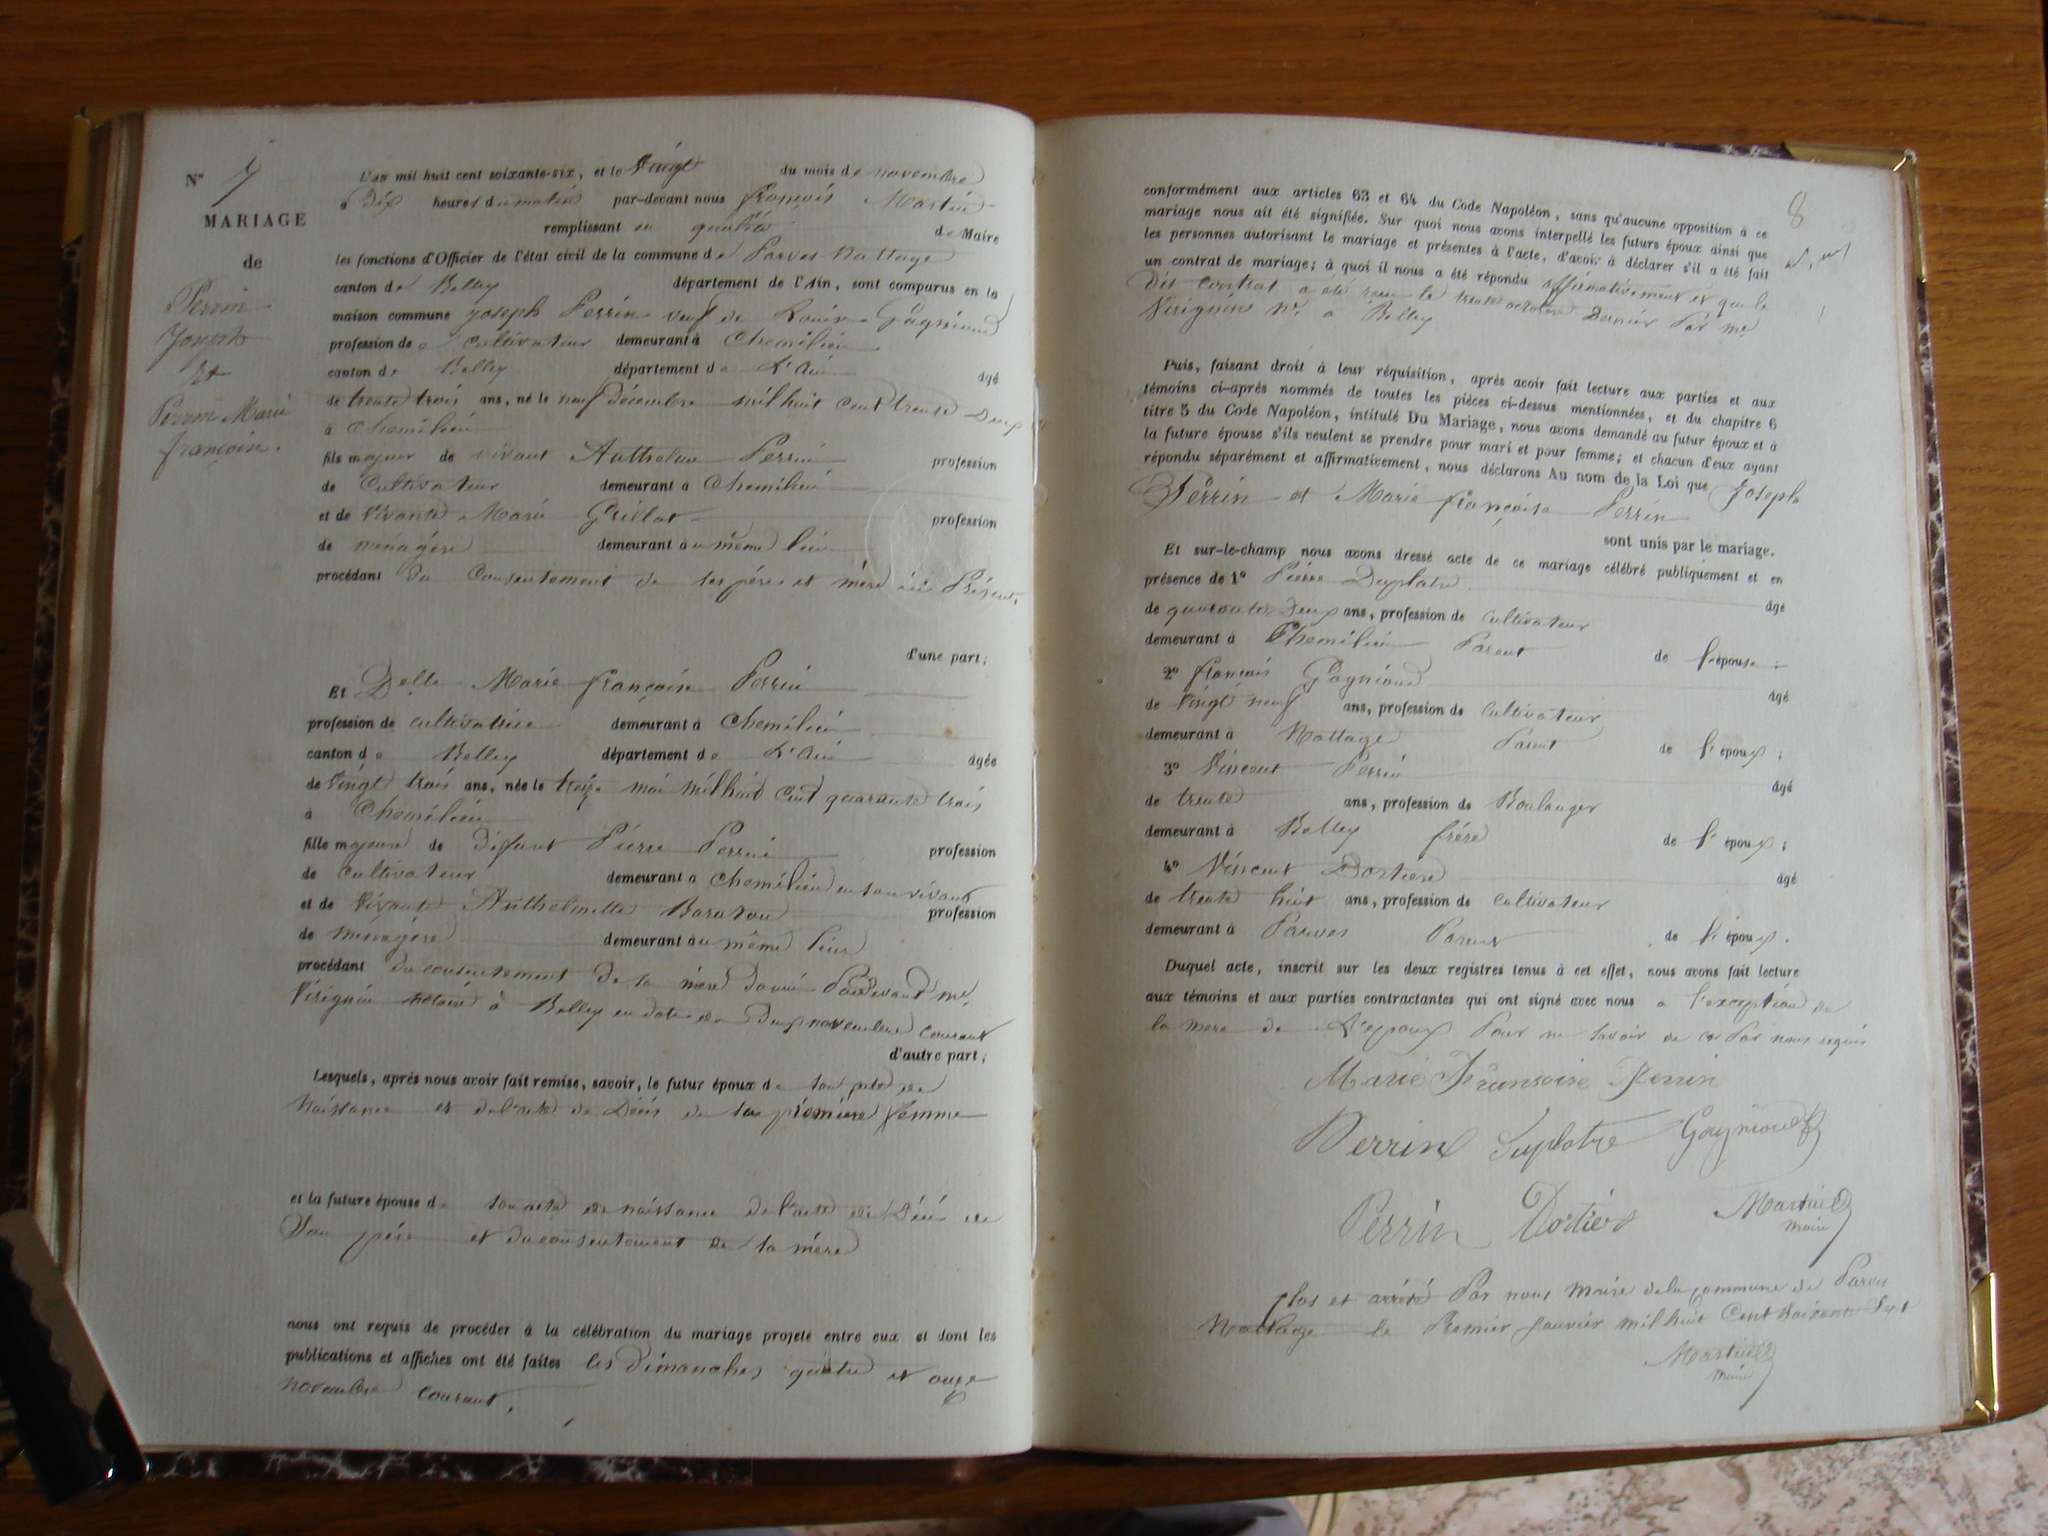 N° 7
MARIAGE
de
Perrin
Joseph
Et
Perrin Marie
françoise.
L'an mil huit cent soixante-six, et le Vingt du mois de novembre
à Dix heures du matin par-devant nous françois Martin
remplissant en qualité de Maire
les fonctions d'Officier de l'état civil de la commune de Parves Nattage
canton de Belley département de l'Ain, sont comparus en la
maison commune joseph Perrin veuf de Gagnioud
profession de cultivateur demeurant à Chemilieu
canton de Belley département de L'Ain âgé
de trente trois ans, né le neuf décembre mil huit cent trente Deux
à Chemilieu
fils majeur de vivant Anthelme Perrin profession
de Cultivateur demeurant à Chemilieu
et de Vivante Marie Grillot profession
de ménagère demeurant au même lieu
procédant du Consentement de ses père et mère ici Présents
d'une part;
Et Delle Marie françoise Perrin
profession de cultivatrice demeurant à Chemilieu
canton de Belley département de L'Ain âgée
de Vingt trois ans, née le treize mai mil huit cent quarante trois
à Chemilieu
fille majeure de défunt Pierre Perrin profession
de cultivateur demeurant à Chemilieu en son vivant
et de Vivante Anthelmette profession
de Ménagère demeurant au même lieu
procédant du consentement de sa mère donné Pardevant me
Virignin notaire à Belley en date du Deux novembre courant
d'autre part;
Lesquels, après nous avoir fait remise, savoir, le futur époux de son acte de
Naissance et de l'acte de Décès de sa première femme
et la future épouse de son acte de naissance de l'acte de Décè de
Son père et du consentement de sa mère
nous ont requis de procéder à la célébration du mariage projeté entre eux et dont les
publications et affiches ont été faites les Dimanches quatre et onze
novembre courant.
8
conformément aux articles 63 et 64 du Code Napoléon, sans qu'aucune opposition à ce
mariage nous ait été signifiée. Sur quoi nous avons interpellé les futurs époux ainsi que
les personnes autorisant le mariage et présentes à l'acte, d'avoir à déclarer s'il a été fait
un contrat de mariage; à quoi il nous a été répondu affirmativement et que le
Dit contrat a été reçu le trente octobre Dernier Par me
Virignin Nre à Belley
Puis, faisant droit à leur réquisition, après avoir fait lecture aux parties et aux
témoins ci-après nommés de toutes les pièces ci-dessus mentionnées, et du chapitre 6
titre 5 du Code Napoléon, intitulé Du Mariage, nous avons demandé au futur époux et à
la future épouse s'ils veulent se prendre pour mari et pour femme; et chacun d'eux ayant
répondu séparément et affirmativement, nous déclarons Au nom de la Loi que Joseph
Perrin et Marie françoise Perrin
sont unis par le mariage.
Et sur-le-champ nous avons dressé acte de ce mariage célébré publiquement et en
présence de 1° Pierre Duplatre âgé
de quarante deux ans, profession de cultivateur
demeurant à Chemilieu Parent de l'épouse;
2° françois Gagnioud âgé
de Vingt neuf ans, profession de cultivateur
demeurant à Nattage Parent de l'époux;
3° Vincent Perrin âgé
de trente ans, profession de Boulanger
demeurant à Belley frère de l'époux;
4° Vincent Dortier âgé
de trente huit ans, profession de cultivateur
demeurant à Parves Parent de l'époux.
Duquel acte, inscrit sur les deux registres tenus à cet effet, nous avons fait lecture
aux témoins et aux parties contractantes qui ont signé avec nous a l'exception de
la mere de L'epoux Pour ne savoir de ce Par nous requis
Marie Fransoise Perrin
Perrin Duplatre Gagnioud
Perrin Dortier Martin
maire
Clos et arrêté Par nous Maire de la commune de Parves
Nattage le Premier janvier mil huit Cent Soixante Sept
Martin
maire